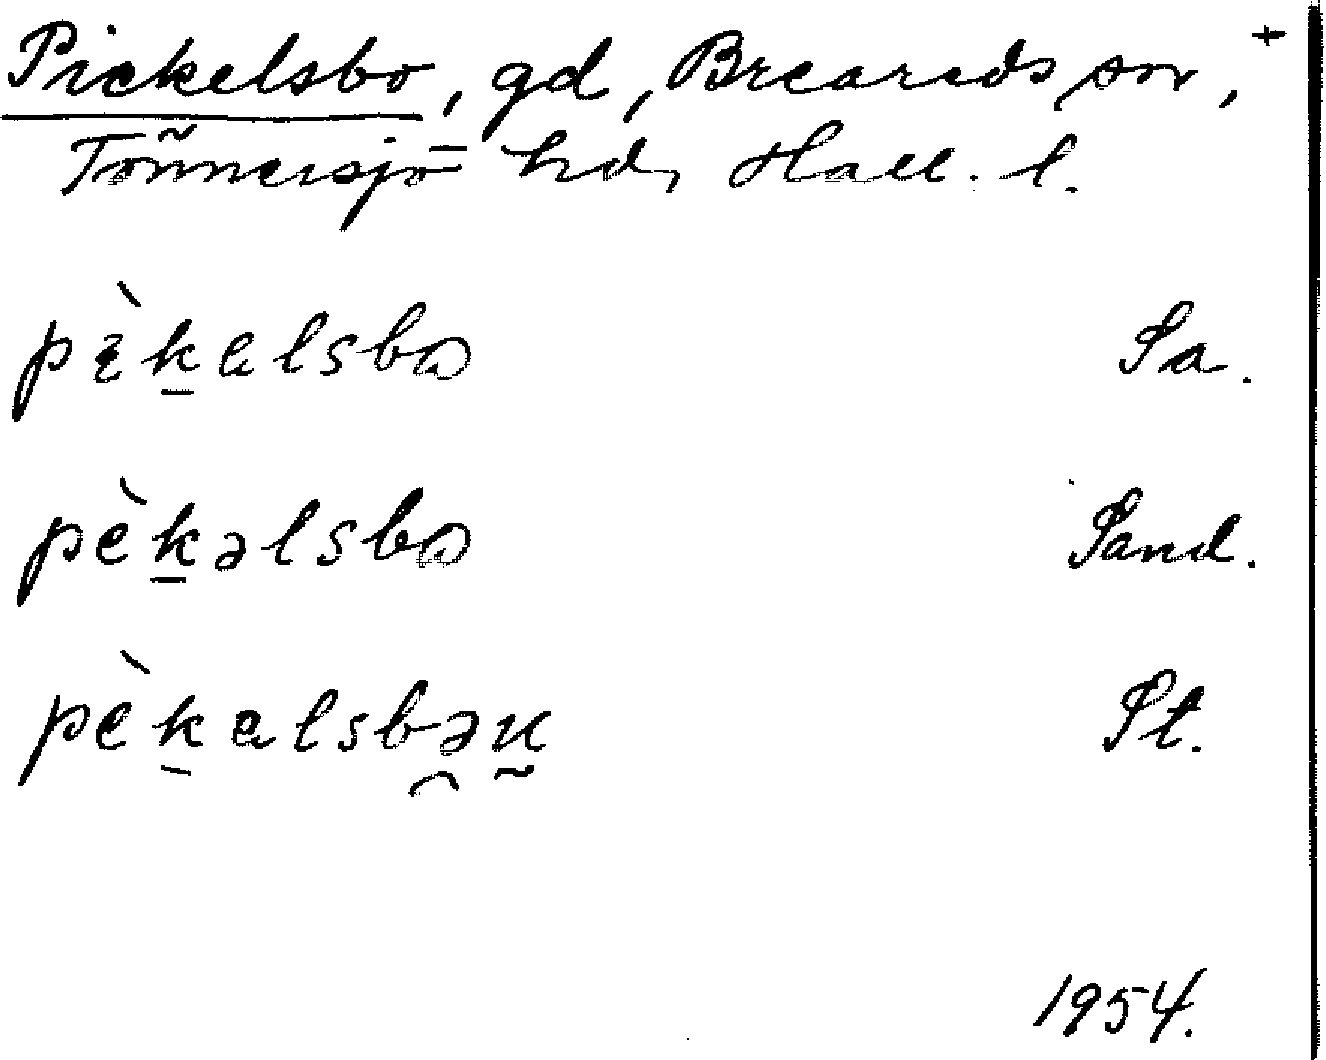 Pickelsbo, gd, Breareds sn, +
Tönnersjö hd, Hall. l.
pèk̲alsbɷ Sa.
pèk̲əlsbɷ Sand.
pèk̲alsbəu St.
1954.